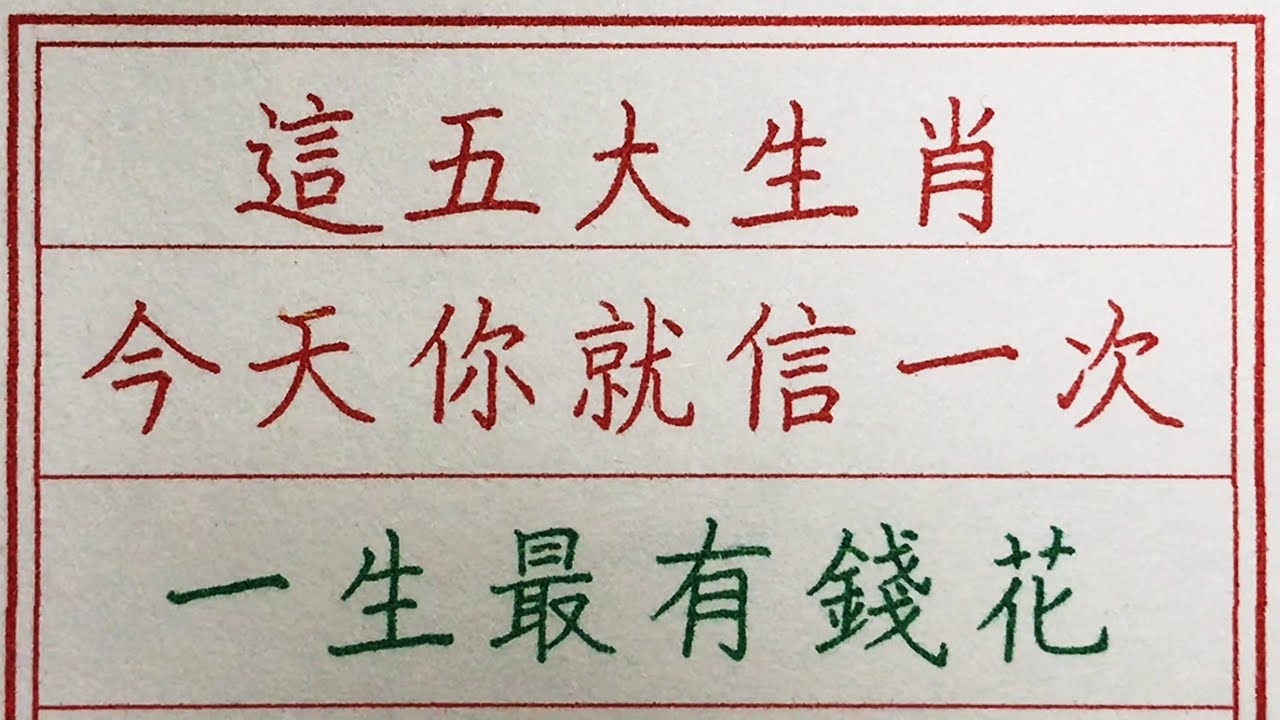 這五大生肖
今天你就信一次
一生最有錢花